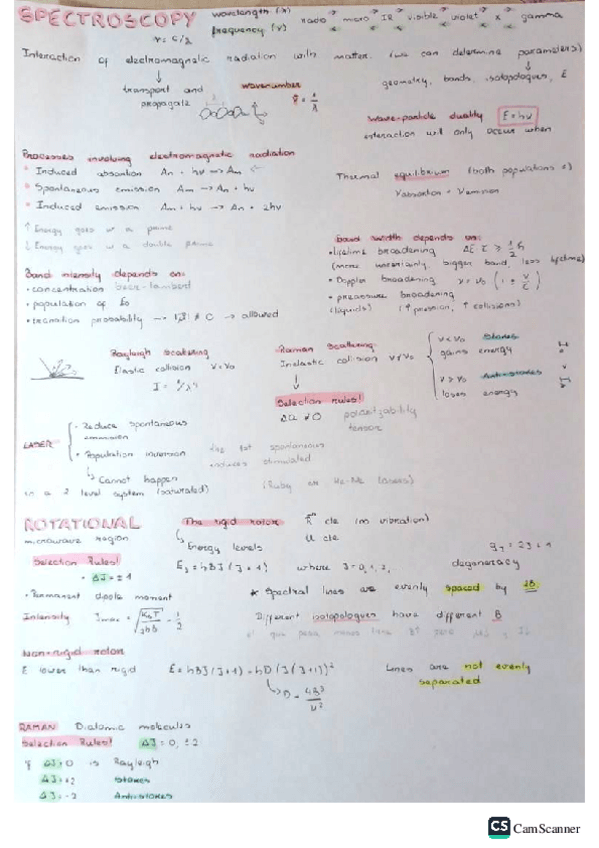 SPECTROSCOPY wavelength (λ) radio micro IR visible violet x gamma
ν = c/λ frequency (ν)
Interaction of electromagnetic radiation with matter. (we can determine parameters)
transport and wavenumber geometry, bonds, isotopologues, E
propagate ν̃ = 1/λ
Wave-particle duality E=hν
interaction will only occur when
Processes involving electromagnetic radiation
• Induced absortion An + hν → Am
• Spontaneous emission Am → An + hν
• Induced emission Am + hν → An + 2hν
Thermal equilibrium (both populations =)
Vabsortion = Vemision
↑ Energy goes w a prime
↓ Energy goes w a double prime
Band width depends on:
• lifetime broadening ΔE·τ ≥ 1/2 ħ
(more uncertainty, bigger band, less lifetime)
• Doppler broadening ν = ν0 (1 ± v/c)
• preassure broadening
(liquids) (↑ pression, ↑ collisions)
Band intensity depends on:
• concentration beer-lambert
• population of E0
• transition probability → allowed
Rayleigh Scattering
Elastic collision ν = ν0
I = 1/λ4
Raman Scattering
Inelastic collision ν ≠ ν0
ν < ν0 Stokes
gains energy
ν > ν0 Anti-stokes
loses energy
Selection rules!
Δα ≠ 0 polarizability
tensor
LASER
• Reduce spontaneous
emission
• Population inversion
Cannot happen
in a 2 level system (saturated)
spontaneous
stimulated
(Ruby He-Ne lasers)
ROTATIONAL
microwave region
The rigid rotor R cte (no vibration)
μ cte
Energy levels
EJ = hBJ(J+1) where J=0,1,2,
gJ = 2J+1
degeneracy
Selection Rules!
• ΔJ = ±1
• Permanent dipole moment
* Spectral lines are evenly spaced by 2B
Intensity Jmax = √(kBT/2hB) - 1/2
Different isotopologues have different B
Non-rigid rotor
E lower than rigid E = hBJ(J+1) - hD(J(J+1))²
D = 4B³/ν²
Lines are not evenly
separated
RAMAN Diatomic molecules
Selection Rules! ΔJ = 0, ±2
if ΔJ=0 is Rayleigh
ΔJ=+2 Stokes
ΔJ=-2 Antistokes
CS CamScanner